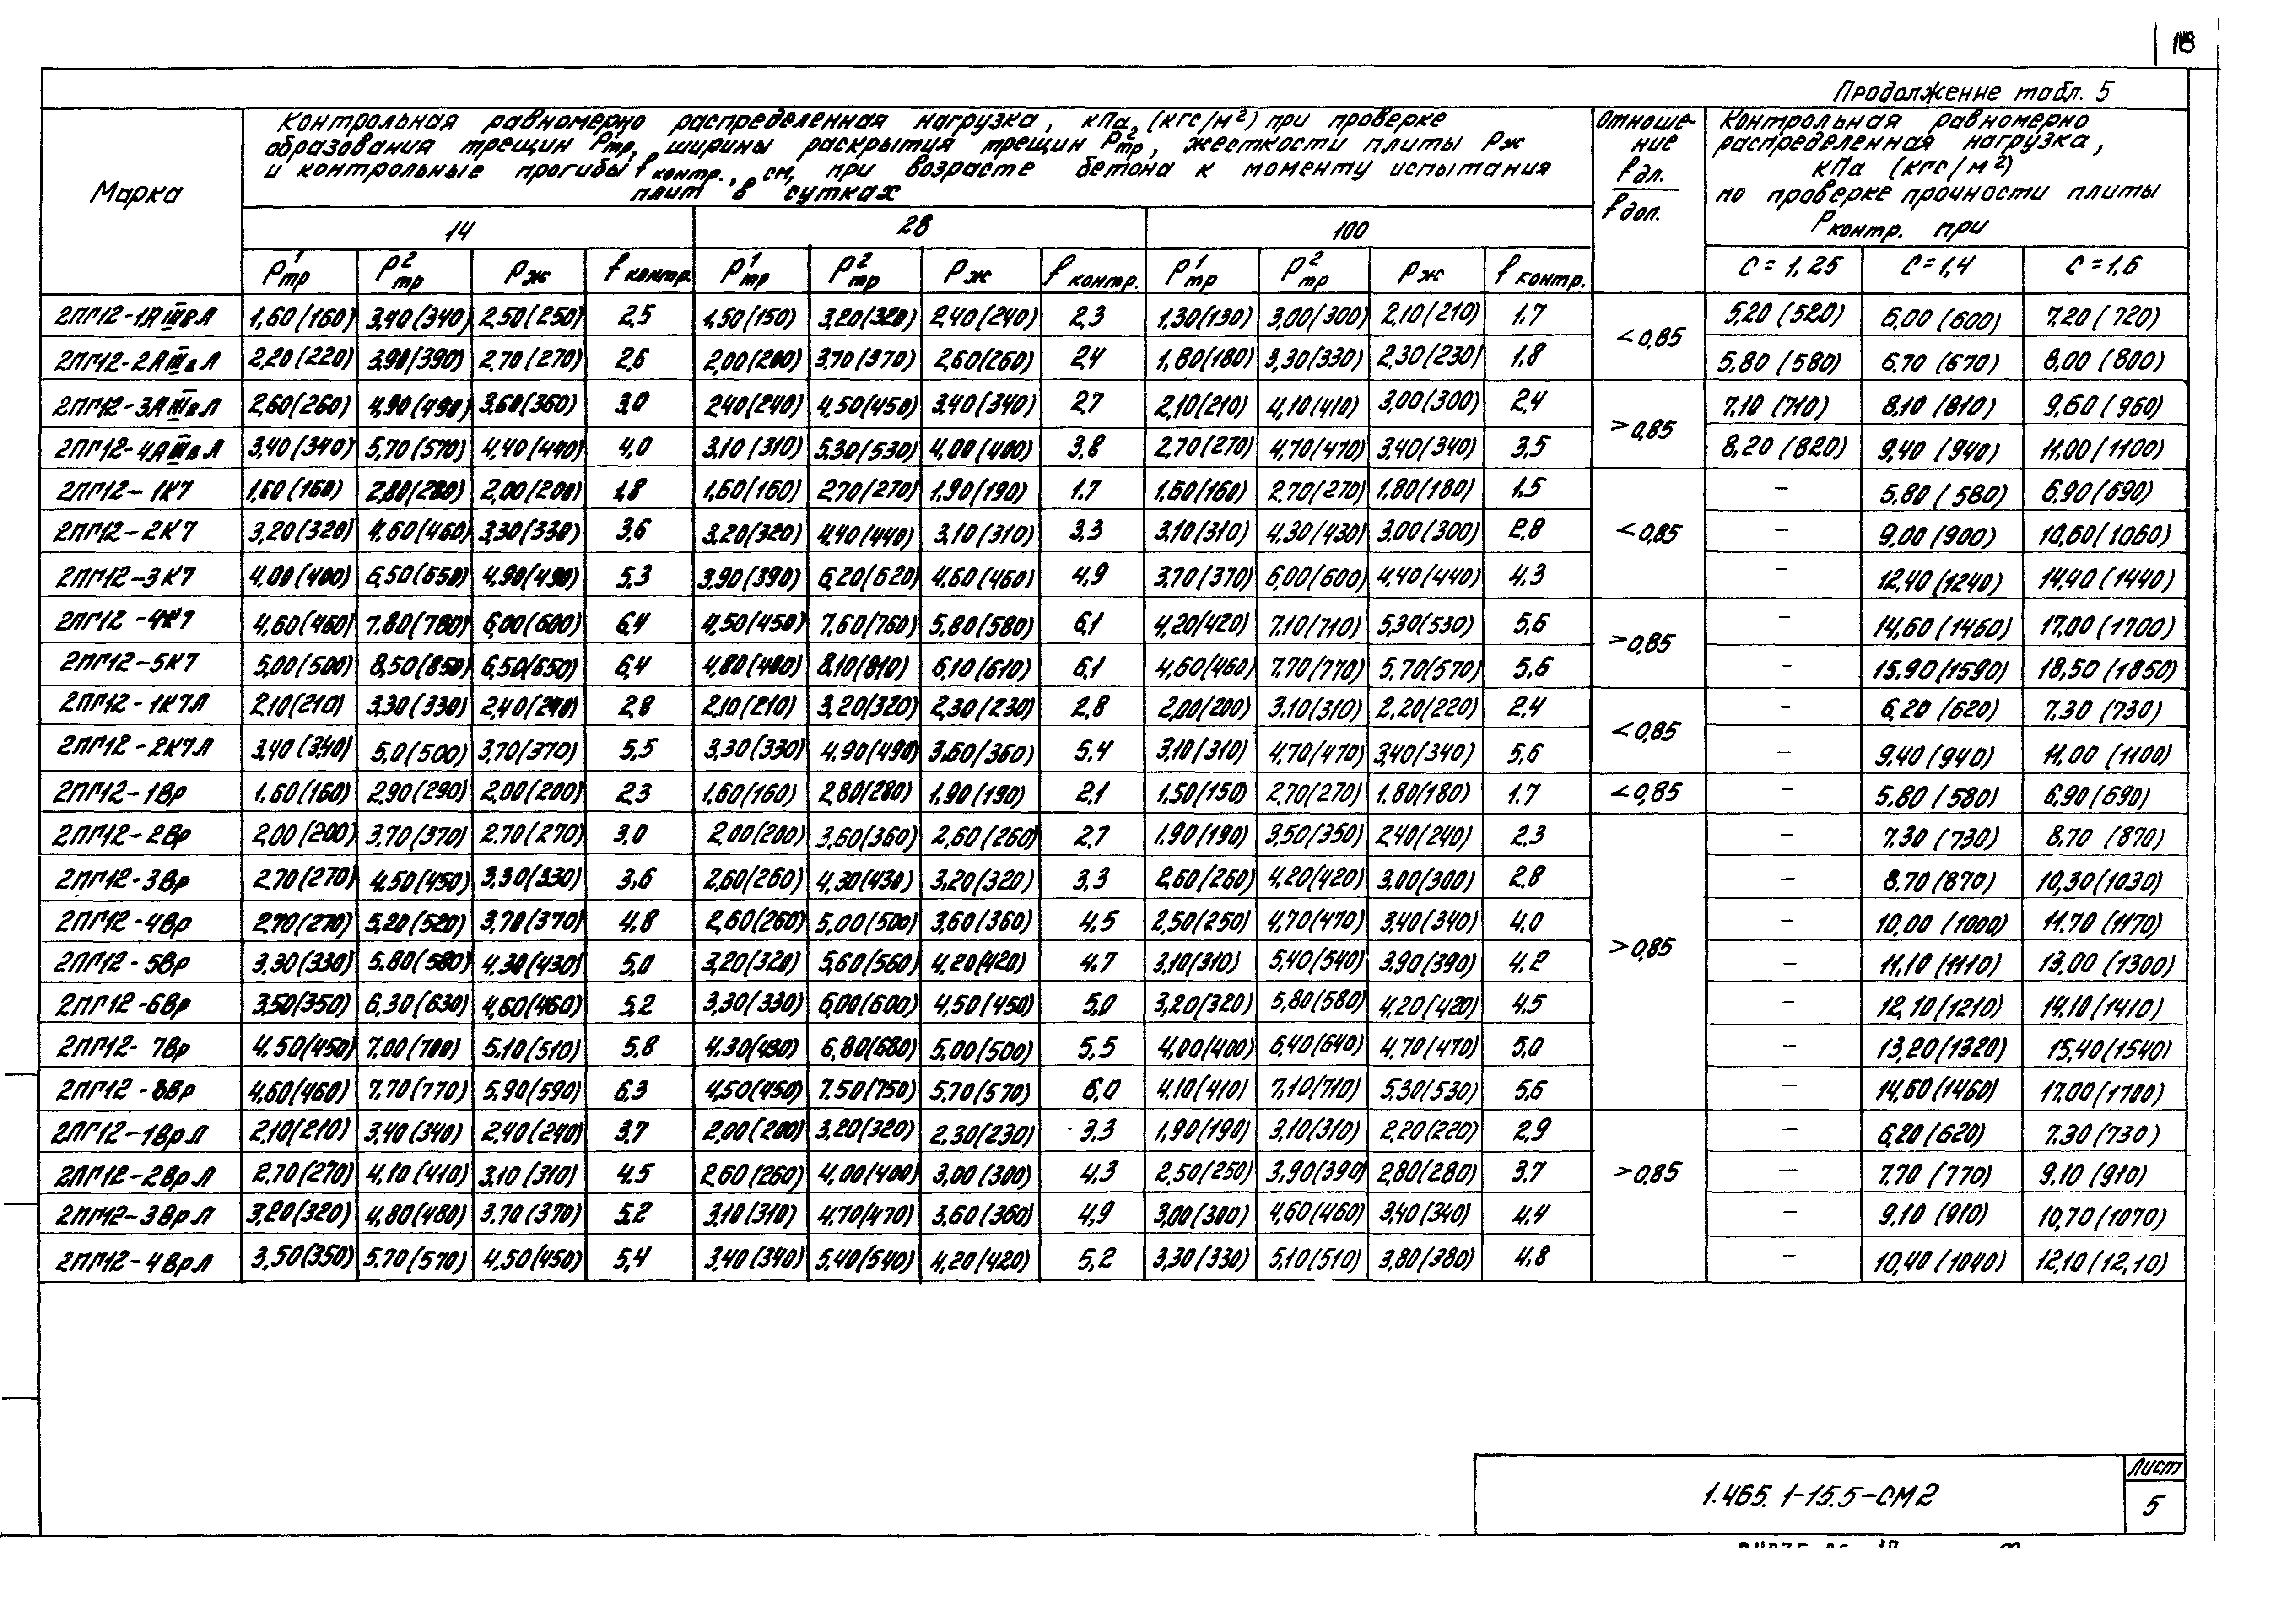 18
Продолжение табл. 5
Марка
Контрольная равномерно распределенная нагрузка, кПа (кгс/м²) при проверке
образования трещин P¹тр, ширины раскрытия трещин P²тр, жесткости плиты Pж
и контрольные прогибы fконтр., см, при возрасте бетона к моменту испытания
плит в сутках
Отноше-
ние
fдл.
fдоп.
Контрольная равномерно
распределенная нагрузка,
кПа (кгс/м²)
по проверке прочности плиты
Pконтр. при
14 28 100
P¹тр P²тр Pж fконтр. P¹тр P²тр Pж fконтр. P¹тр P²тр Pж fконтр. C = 1,25 C = 1,4 C = 1,6
2ПГ12-1АIIIвЛ 1,60(160) 3,40(340) 2,50(250) 2,5 1,50(150) 3,20(320) 2,40(240) 2,3 1,30(130) 3,00(300) 2,10(210) 1.7 <0,85 5,20 (520) 6,00 (600) 7,20 (720)
2ПГ12-2АIIIвЛ 2,20(220) 3,90(390) 2,70(270) 2,6 2,00(200) 3,70(370) 2,60(260) 2,4 1,80(180) 3,30(330) 2,30(230) 1,8 5,80 (580) 6,70 (670) 8,00 (800)
2ПГ12-3АIIIвЛ 2,60(260) 4,90(490) 3,60(360) 3,0 2,40(240) 4,50(450) 3,40(340) 2,7 2,10(210) 4,10(410) 3,00(300) 2,4 >0,85 7,10 (710) 8,10 (810) 9,60 (960)
2ПГ12-4АIIIвЛ 3,40(340) 5,70(570) 4,40(440) 4,0 3,10(310) 5,30(530) 4,00(400) 3,8 2,70(270) 4,70(470) 3,40(340) 3,5 8,20 (820) 9,40 (940) 11,00 (1100)
2ПГ12-1К7 1,60(160) 2,80(280) 2,00(200) 1,8 1,60(160) 2,70(270) 1,90(190) 1.7 1,60(160) 2,70(270) 1,80(180) 1,5 <0,85 - 5,80 (580) 6,90(690)
2ПГ12-2К7 3,20(320) 4,60(460) 3,30(330) 3,6 3,20(320) 4,40(440) 3,10(310) 3,3 3,10(310) 4,30(430) 3,00(300) 2,8 - 9,00 (900) 10,60(1060)
2ПГ12-3К7 4,00(400) 6,50(650) 4,90(490) 5,3 3,90(390) 6,20(620) 4,60(460) 4,9 3,70(370) 6,00(600) 4,40(440) 4,3 - 12,40 (1240) 14,40 (1440)
2ПГ12-4К7 4,60(460) 7,80(780) 6,00(600) 6,4 4,50(450) 7,60(760) 5,80(580) 6,1 4,20(420) 7,10(710) 5,30(530) 5,6 >0,85 - 14,60 (1460) 17,00 (1700)
2ПГ12-5К7 5,00(500) 8,50(850) 6,50(650) 6,4 4,80(480) 8,10(810) 6,10(610) 6,1 4,60(460) 7,70(770) 5,70(570) 5,6 - 15,90(1590) 18,50 (1850)
2ПГ12-1К7Л 2,10(210) 3,30(330) 2,40(240) 2,8 2,10(210) 3,20(320) 2,30(230) 2,8 2,00(200) 3,10(310) 2,20(220) 2,4 <0,85 - 6,20 (620) 7,30 (730)
2ПГ12-2К7Л 3,40(340) 5,0(500) 3,70(370) 5,5 3,30(330) 4,90(490) 3,60(360) 5,4 3,10(310) 4,70(470) 3,40(340) 5,6 - 9,40 (940) 11,00 (1100)
2ПГ12-1Вр 1,60(160) 2,90(290) 2,00(200) 2,3 1,60(160) 2,80(280) 1,90(190) 2,1 1,50(150) 2,70(270) 1,80(180) 1.7 <0,85 - 5,80 (580) 6,90(690)
2ПГ12-2Вр 2,00(200) 3,70(370) 2,70(270) 3,0 2,00(200) 3,60(360) 2,60(260) 2,7 1,90(190) 3,50(350) 2,40(240) 2,3 >0,85 - 7,30 (730) 8,70 (870)
2ПГ12-3Вр 2,70(270) 4,50(450) 3,30(330) 3,6 2,60(260) 4,30(430) 3,20(320) 3,3 2,60(260) 4,20(420) 3,00(300) 2,8 - 8,70 (870) 10,30(1030)
2ПГ12-4Вр 2,70(270) 5,20(520) 3,70(370) 4,8 2,60(260) 5,00(500) 3,60(360) 4,5 2,50(250) 4,70(470) 3,40(340) 4,0 - 10,00 (1000) 11,70 (1170)
2ПГ12-5Вр 3,30(330) 5,80(580) 4,30(430) 5,0 3,20(320) 5,60(560) 4,20(420) 4,7 3,10(310) 5,40(540) 3,90(390) 4,2 - 11,10 (1110) 13,00 (1300)
2ПГ12-6Вр 3,50(350) 6,30(630) 4,60(460) 5,2 3,30(330) 6,00(600) 4,50(450) 5,0 3,20(320) 5,80(580) 4,20(420) 4,5 - 12,10(1210) 14,10(1410)
2ПГ12-7Вр 4,50(450) 7,00(700) 5,10(510) 5,8 4,30(430) 6,80(680) 5,00(500) 5,5 4,00(400) 6,40(640) 4,70(470) 5,0 - 13,20(1320) 15,40(1540)
2ПГ12-8Вр 4,60(460) 7,70(770) 5,90(590) 6,3 4,50(450) 7,50(750) 5,70(570) 6,0 4,10(410) 7,10(710) 5,30(530) 5,6 - 14,60(1460) 17,00(1700)
2ПГ12-1ВрЛ 2,10(210) 3,40(340) 2,40(240) 3,7 2,00(200) 3,20(320) 2,30(230) 3,3 1,90(190) 3,10(310) 2,20(220) 2,9 >0,85 - 6,20(620) 7,30(730)
2ПГ12-2ВрЛ 2,70(270) 4,10(410) 3,10(310) 4,5 2,60(260) 4,00(400) 3,00(300) 4,3 2,50(250) 3,90(390) 2,80(280) 3,7 - 7,70 (770) 9,10 (910)
2ПГ12-3ВрЛ 3,20(320) 4,80(480) 3,70(370) 5,2 3,10(310) 4,70(470) 3,60(360) 4,9 3,00(300) 4,60(460) 3,40(340) 4,4 - 9,10 (910) 10,70(1070)
2ПГ12-4ВрЛ 3,50(350) 5,70(570) 4,50(450) 5,4 3,40(340) 5,40(540) 4,20(420) 5,2 3,30(330) 5,10(510) 3,80(380) 4,8 - 10,40 (1040) 12,10(12,10)
1.465.1-15.5-СМ2
Лист
5